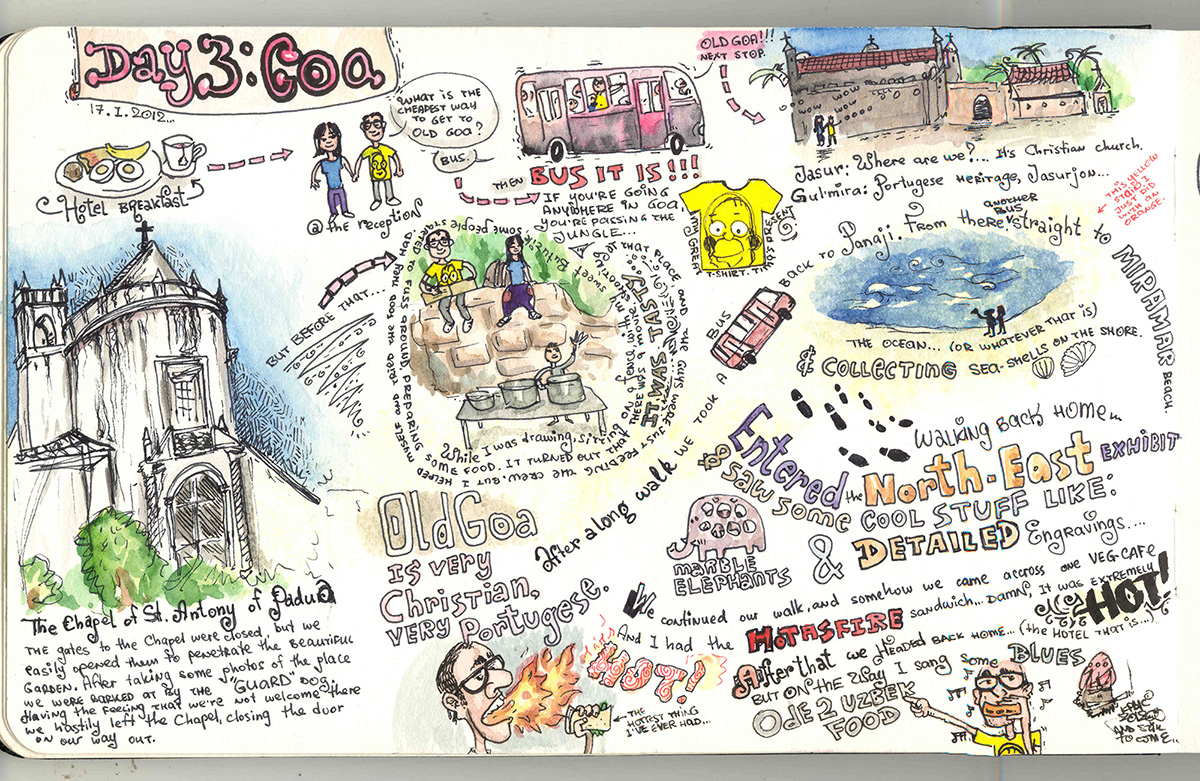 Day 3: Goa
17.I.2012...
Hotel Breakfast
@ the reception
WHAT IS THE
CHEAPEST WAY
TO GET TO
OLD GOA?
BUS.
THEN
BUS IT IS!!!
OLD GOA!!!
NEXT STOP.
WOW WOW
WOW WOW
WOW
IF YOU'RE GOING
ANYWHERE IN GOA,
YOU'RE PASSING THE
JUNGLE...
MY GREAT
T-SHIRT. THE
Jasur: Where are we?... It's Christian church.
Gulmira: Portugese Heritage, Jasurjon...
THIS YELLOW
STAIN I
JUST DID
WITH AN
ORANGE.
BUT BEFORE THAT...
While I was drawing, sitting on
THAT PLACE, AND THE GUYS WERE JUST
FEEDING THE CREW. BUT I HELPED MYSELF
SOME FOOD. IT TURNED OUT THAT THERE WAS A MOVIE SHOOTING
IT WAS TASTY!
After a long walk WE TOOK A BUS BACK TO Panaji. From there, straight to MIRAMAR BEACH.
another
BUS
THE OCEAN... (OR WHATEVER THAT IS)
& COLLECTING SEA-SHELLS ON THE SHORE.
The Chapel of St. Antony of Padua
THE gates to the Chapel were closed, but we
easily opened them to penetrate the Beautiful
Garden. After taking some photos of the place
we were barked at by the "GUARD" DOG.
Having the Feeling that we're not welcome there
we hastily left the Chapel, closing the door
on our way out.
Old Goa
is very
Christian,
very Portugese.
Walking Back Home...
Entered the North-East EXHIBIT
& saw some COOL STUFF LIKE:
MARBLE
ELEPHANTS
& DETAILED Engravings...
We continued our walk, and somehow we came accross one VEG-CAFE
And I had the HOTASFIRE sandwich... Damn, it was EXTREMELY
HOT!
HOT!
THE
HOTTEST THING
I'VE EVER HAD...
After that we HEADED BACK HOME... (the HOTEL THAT IS...)
BUT ON THE WAY I SANG SOME BLUES
Ode 2 UZBEK
FOOD
2012
AND STILL
TO COME..